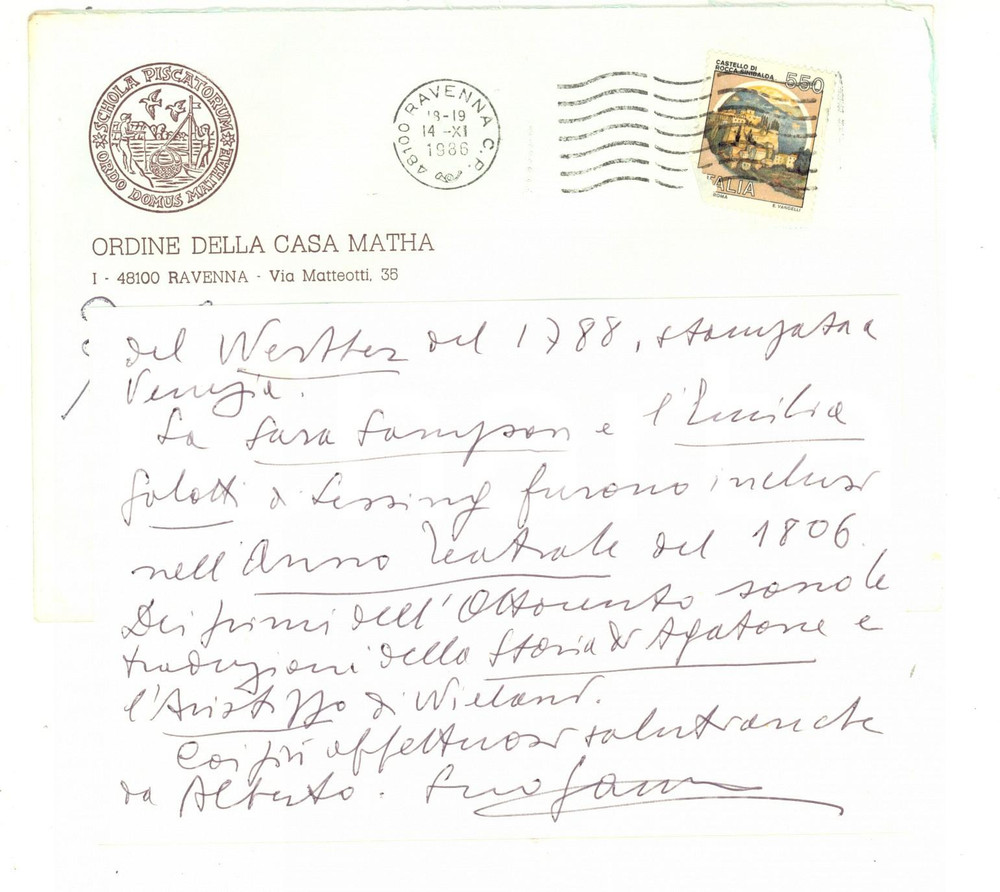 SCHOLA PISCATORUM
ORDO DOMUS MATHAE
48100 RAVENNA C.P.
18-19
14-XI
1986
CASTELLO DI
ROCCA SINIBALDA
550
ITALIA
ROMA
E. VANGELLI
ORDINE DELLA CASA MATHA
I - 48100 RAVENNA - Via Matteotti, 35
del Werther del 1788, stampata a
Venezia.
La Sara Sampson e l'Emilia
Galotti di Lessing furono inclusi
nell'Anno Teatrale del 1806.
Dei primi dell'Ottocento sono le
traduzioni della Storia di Agatone e
l'Aristippo di Wieland.
Coi più affettuosi saluti anche
da Alberto. Suo